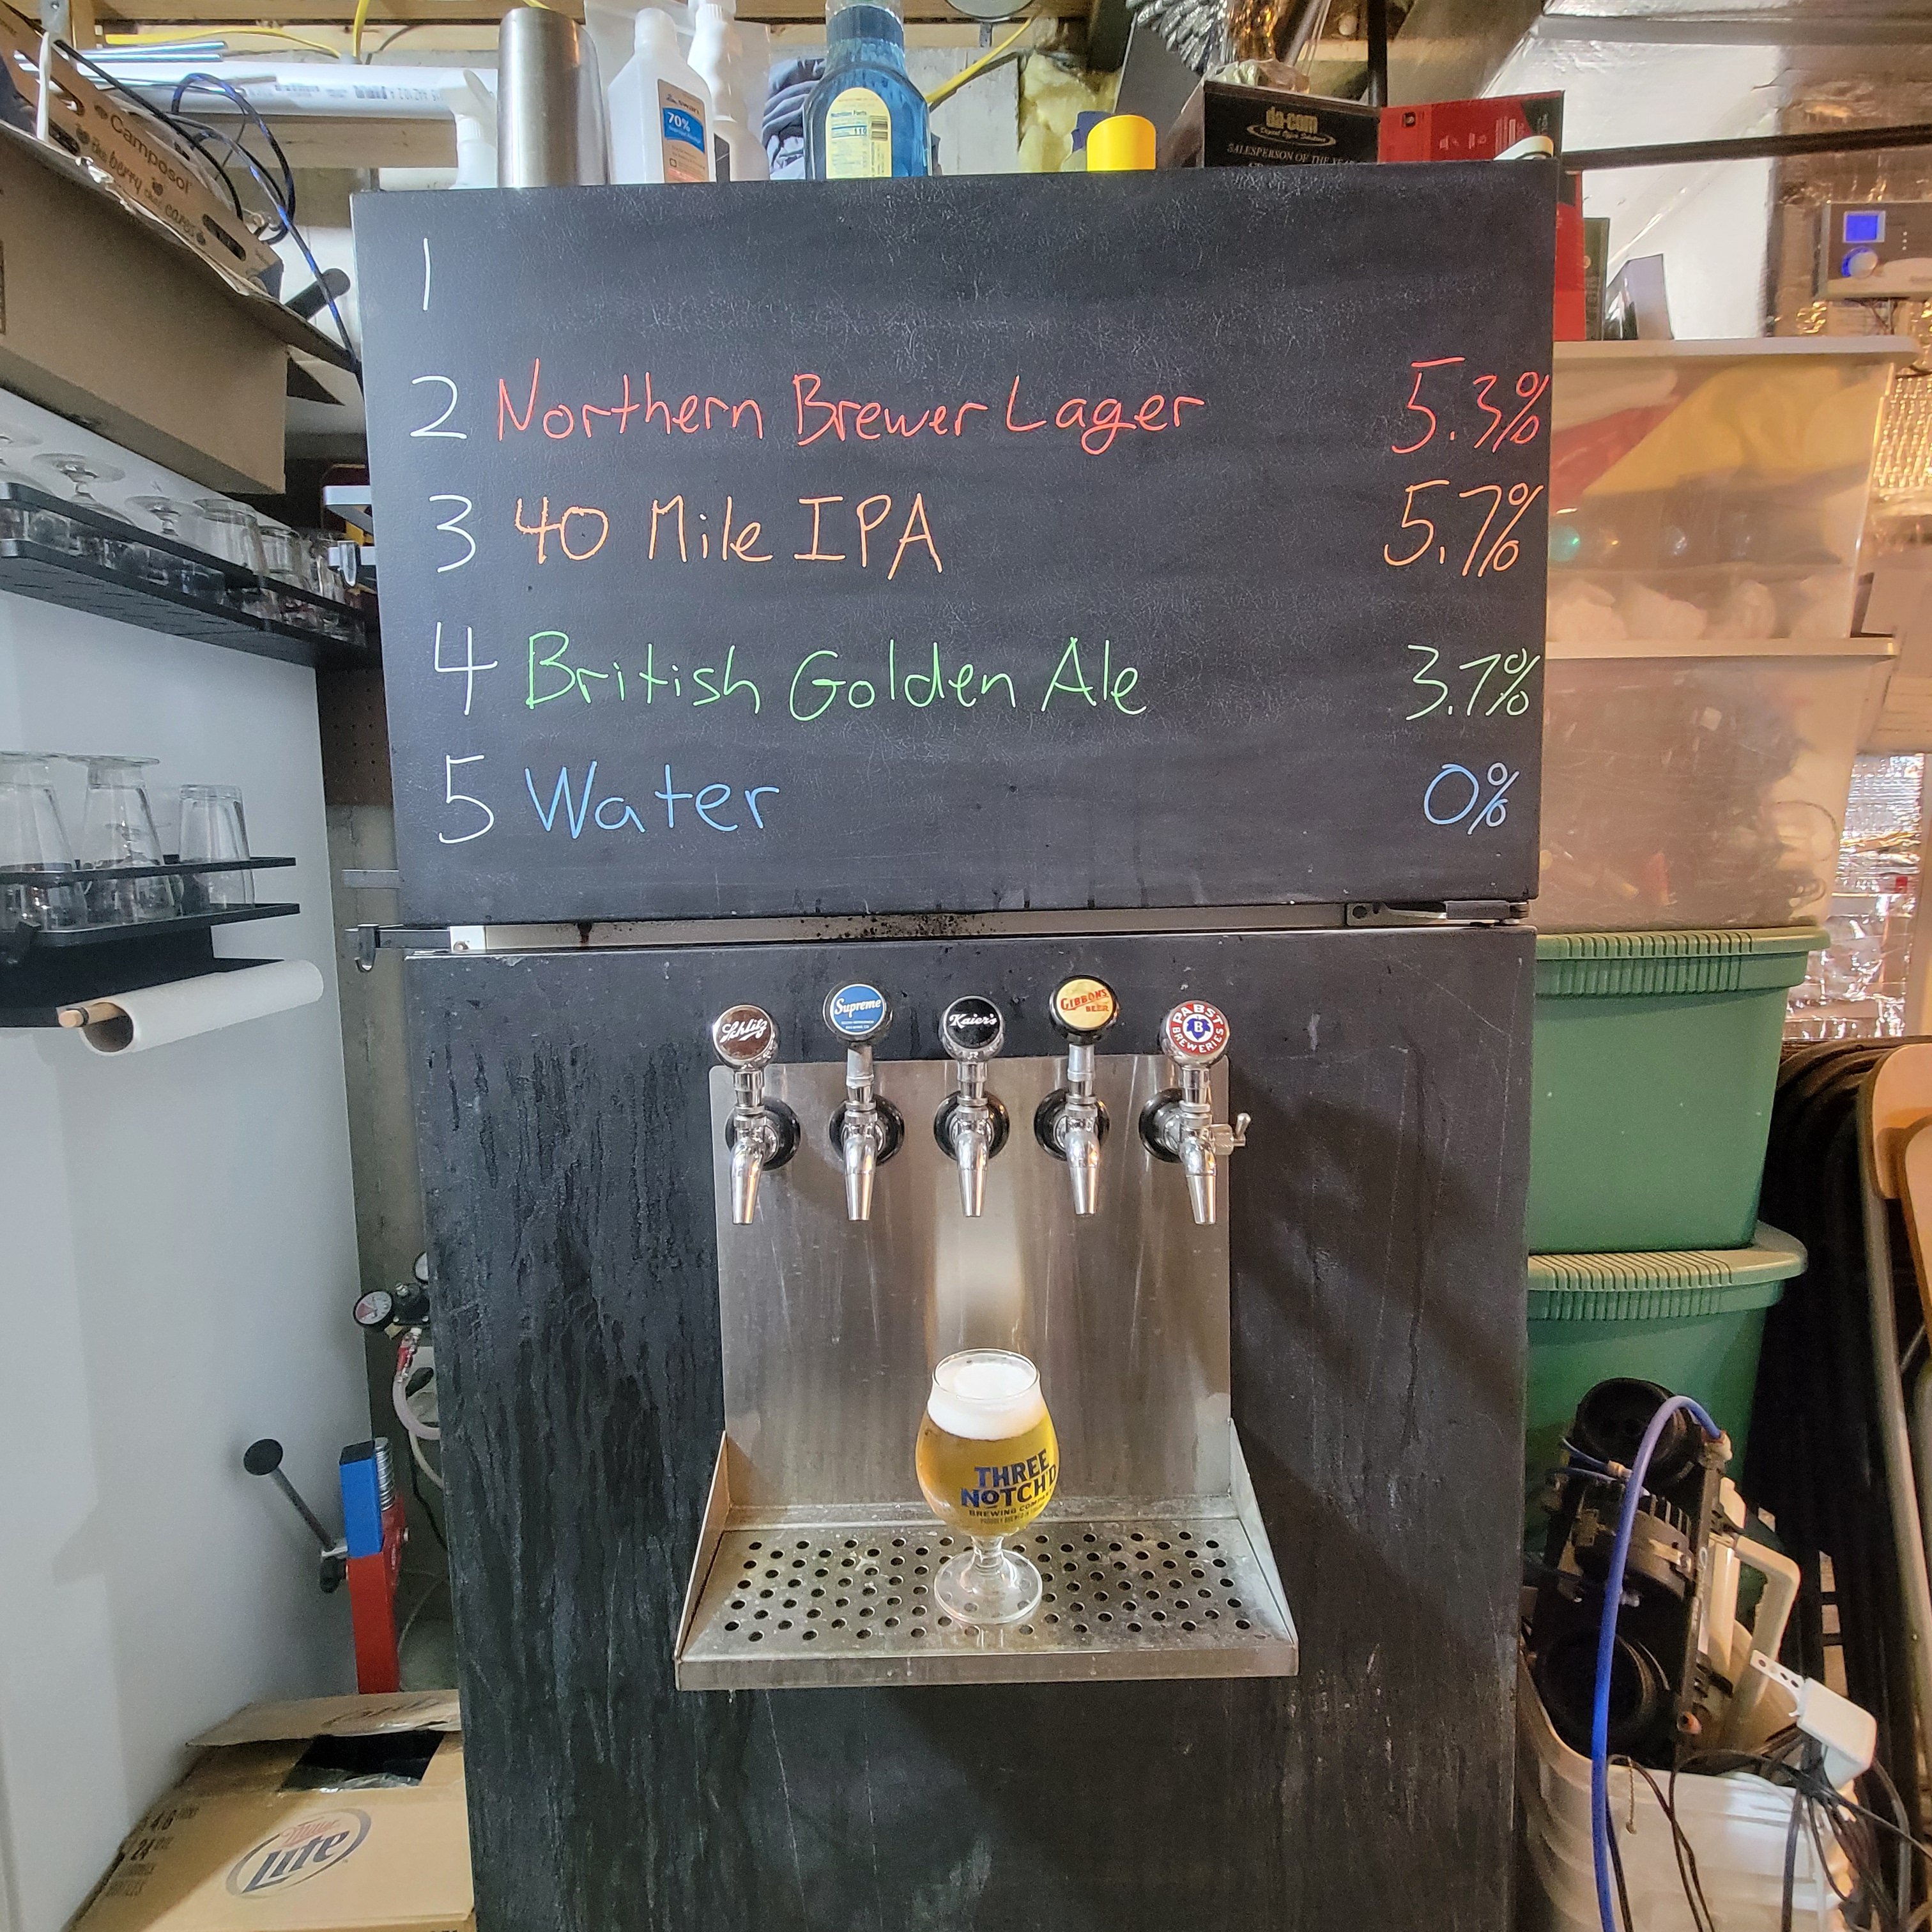 Camposol
the berry that cares
70%
Nutrition Facts
da-com
SALESPERSON OF THE YEAR
1
2 Northern Brewer Lager 5.3%
3 40 Mile IPA 5.7%
4 British Golden Ale 3.7%
5 Water 0%
Schlitz
Supreme
Kaier's
GIBBONS
BEER
PABST
B
BREWERIES
THREE
NOTCH'D
BREWING COMPANY
Miller
Lite